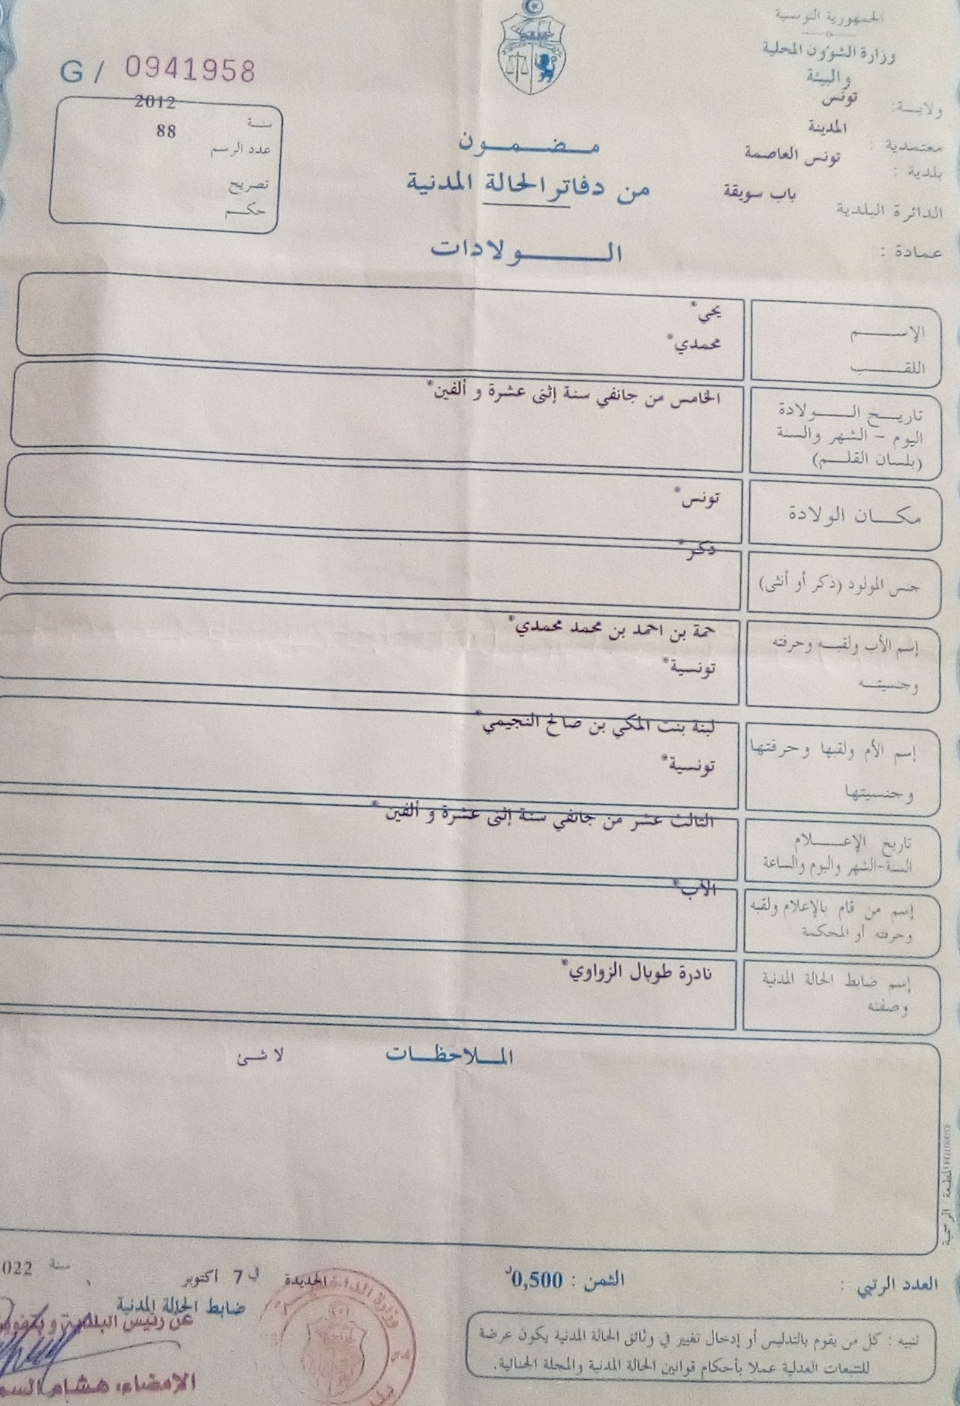 الجمهورية التونسية
وزارة الشؤون المحلية
والبيئة
ولاية: تونس
معتمدية : المدينة
بلدية : تونس العاصمة
الدائرة البلدية باب سويقة
عمادة :
G / 0941958
سنة 2012
عدد الرسم 88
تصريح
حكم
مضمون
من دفاتر الحالة المدنية
الولادات
الإسم يحي*
اللقب محمدي*
تاريخ الولادة الخامس من جانفي سنة إثنى عشرة و ألفين*
اليوم - الشهر والسنة
(بلسان القلم)
مكان الولادة تونس*
جنس المولود (ذكر أو أنثى) ذكر*
إسم الأب ولقبه وحرفته حمة بن احمد بن محمد محمدي*
وجنسيته تونسية*
إسم الأم ولقبها وحرفتها لبنة بنت المكي بن صالح النجيمي*
وجنسيتها تونسية*
تاريخ الإعلام الثالث عشر من جانفي سنة إثنى عشرة و ألفين*
السنة-الشهر واليوم والساعة
إسم من قام بالإعلام ولقبه الأب*
وحرفته أو المحكمة
إسم ضابط الحالة المدنية نادرة طوبال الزواوي*
وصفته
الملاحظات لا شئ
المطبعة الرسمية
العدد الرتبي :
الثمن : 0,500د
الجديدة في 7 أكتوبر سنة 022
ضابط الحالة المدنية
عن رئيس البلدية و
الإمضاء، هشام
وزارة
تنبيه : كل من يقوم بالتدليس أو إدخال تغيير في وثائق الحالة المدنية يكون عرضة
للتتبعات العدلية عملا بأحكام قوانين الحالة المدنية والمجلة الجنائية.